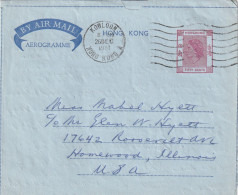 BY AIR MAIL
AEROGRAMME
HONG KONG
KOWLOON
HONG KONG
Miss Mabel Hyett
c/o Mr Glen W. Hyett
17642 Roosevelt Ave
Homewood, Illinois
U.S.A